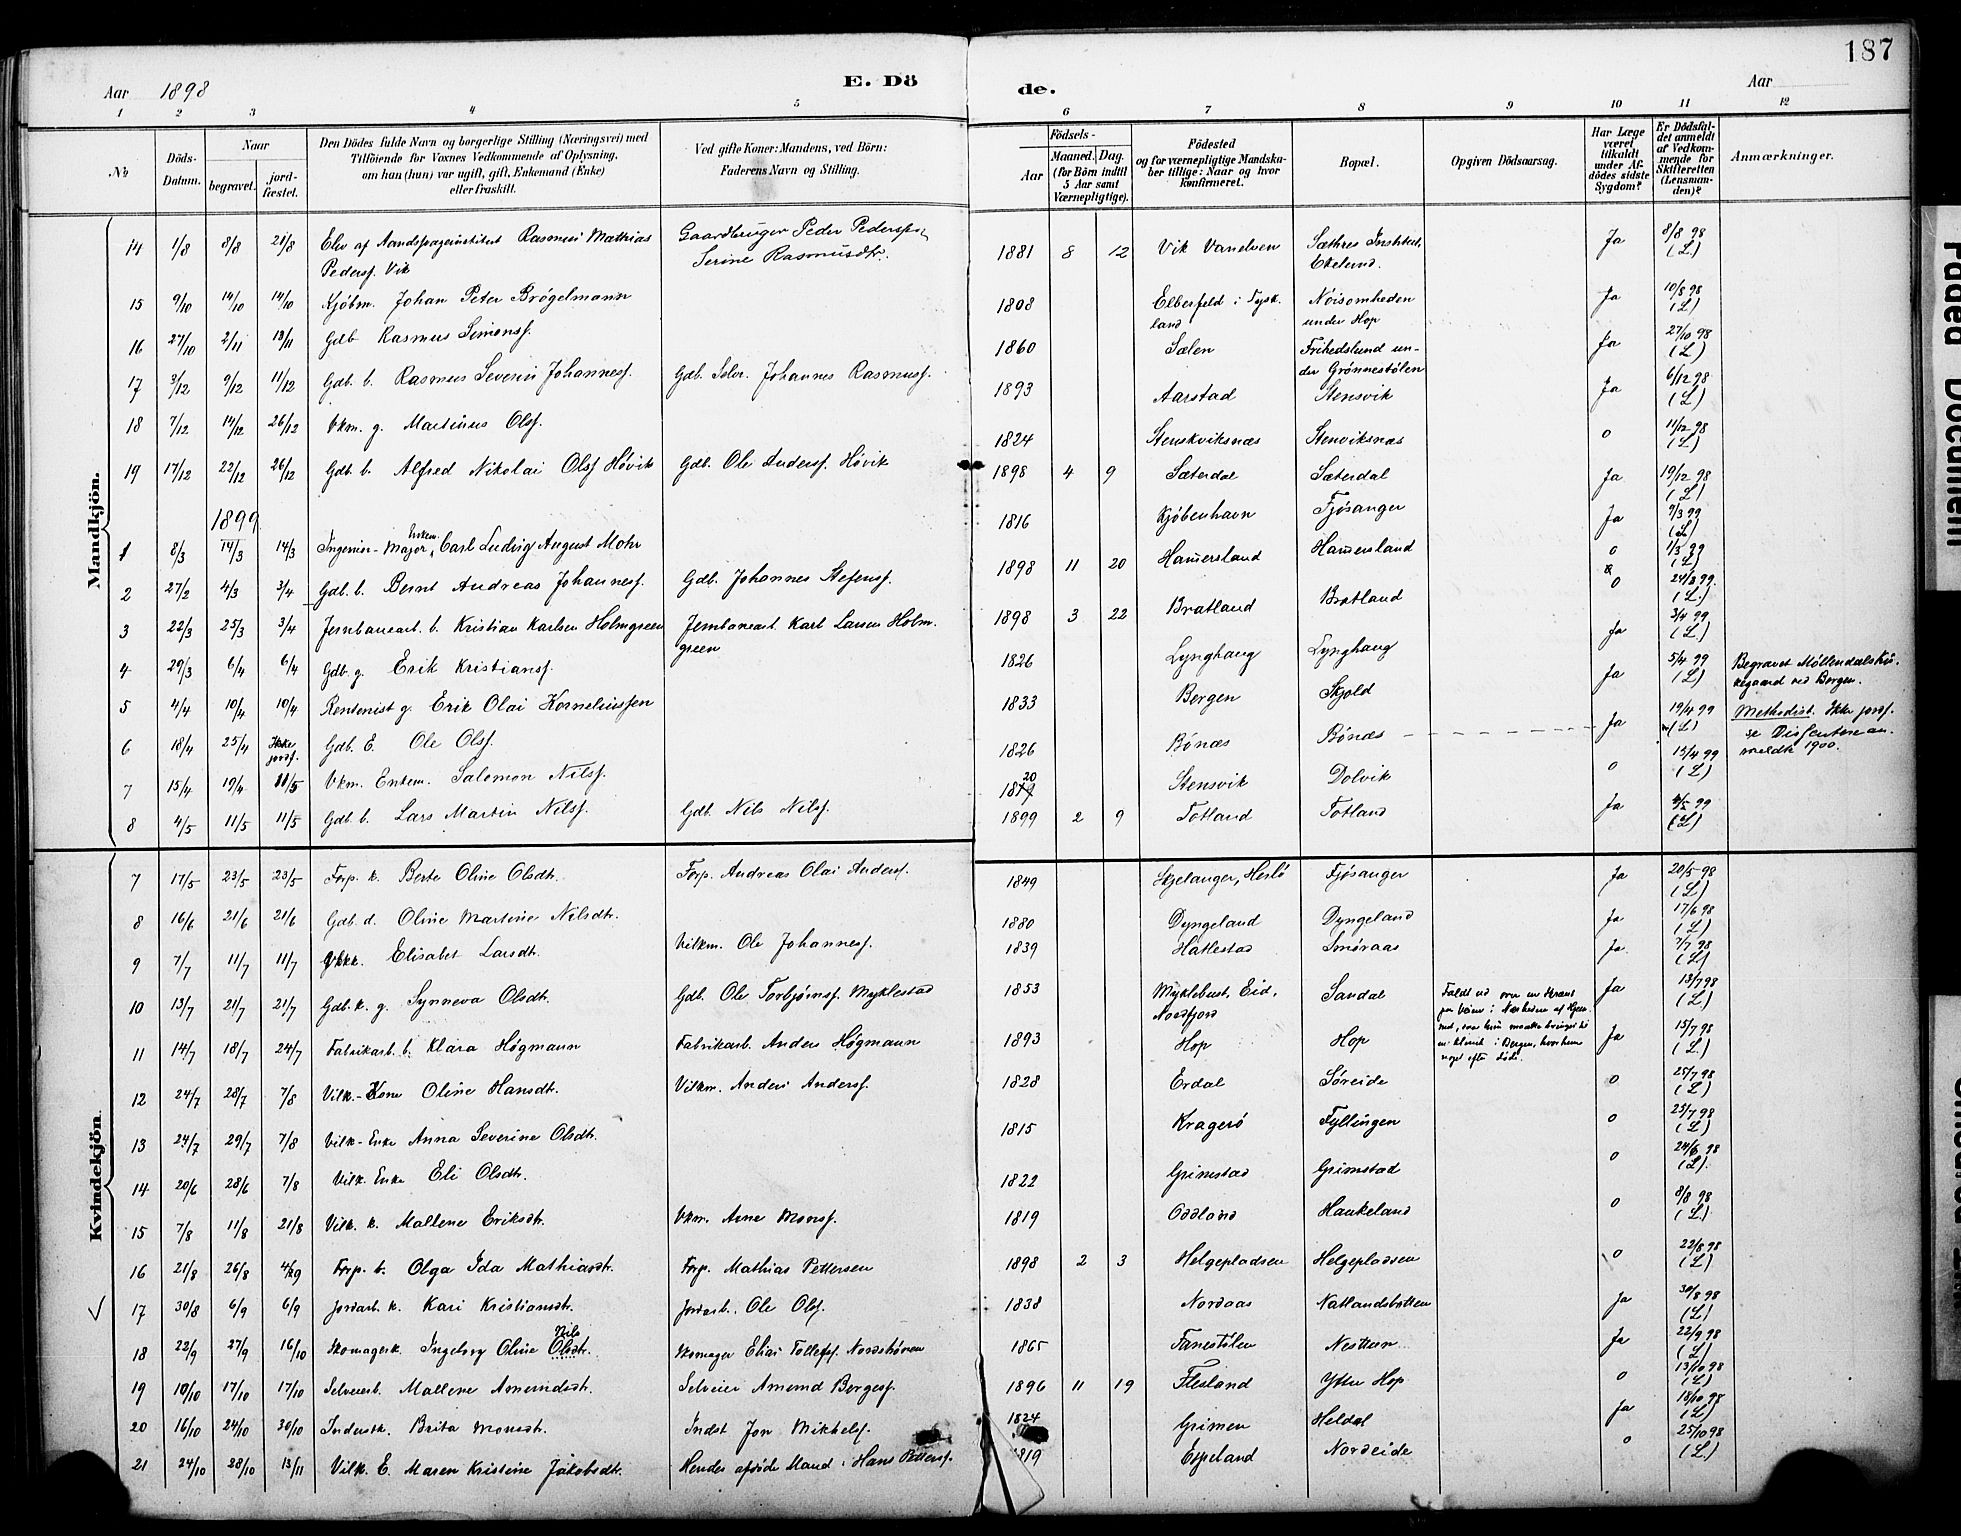 187
Aar 1898 E. Dö de. Aar
1 2 3 4 5 6 7 8 9 10 11 12
No
Döds-Datum.
Naar begravet. jord-fæstet.
Den Dödes fulde Navn og borgerlige Stilling (Næringsvei) med Tilföiende for Voxnes Vedkommende af Oplysning, om han (hun) var ugift, gift, Enkemand (Enke) eller fraskilt.
Ved gifte Koner: Mandens, ved Börn: Faderens Navn og Stilling.
Födsels- Aar Maaned. Dag. (for Börn indtil 5 Aar samt Værnepligtige).
Födested og for værnepligtige Mandskaber tillige: Naar og hvor konfirmeret.
Bopæl.
Opgiven Dödsaarsag.
Har Læge været tilkaldt under Afdödes sidste Sygdom?
Er Dödsfaldet anmeldt af Vedkommende for Skifteretten (Lensmanden)?
Anmærkninger.
Mandkjön.
14 1/8 8/8 21/8 Elev af Aandssvageinstitut Rasmus Mathias Pedersf. Vik Gaardbruger Peder Pedersen Serine Rasmusdtr. 1881 8 12 Vik Vanelven Sæthres Institut, Ekelund. Ja 8/8 98 (L.)
15 9/10 14/10 14/10 Kjöbm. Johan Peter Brögelmann 1808 Elberfeld i Tyskland Nöisomheden under Hop Ja 10/8 98 (L)
16 27/10 2/11 13/11 Gdb Rasmus Simonsf. 1860 Sælen Frihedslund under Grönnestölen Ja 27/10 98 (L)
17 3/12 9/12 11/12 Gdb. b. Rasmus Severin Johannesf. Gdb. Selv. Johannes Rasmusf. 1893 Aarstad Stensvik Ja 6/12 98 (L)
18 7/12 14/12 26/12 Vkm. g. Martinus Olsf. 1824 Stenskviksnæs Stenviksnæs o 11/12 98 (L)
19 17/12 22/12 26/12 Gdb b. Alfred Nikolai Olsf Hövik Gdb. Ole Andersf. Hövik 1898 4 9 Sæterdal Sæterdal Ja 19/12 98 (L)
1899
1 8/3 14/3 14/3 Ingeniör-Major, Enkem. Carl Ludvig August Mohr 1816 Kjöbenhavn Fjösanger Ja 9/3 99 (L)
2 27/2 4/3 3/4 Gdb. b. Bernt Andreas Johannesf. Gdb. Johannes Stefensf. 1898 11 20 Hamersland Hamersland o 1/3 99 (L)
3 22/3 25/3 3/4 Jernbanearb. b. Kristian Karlsen Holmgreen Jernbanearb. Karl Larsen Holmgreen 1898 3 22 Bratland Bratland o 24/3 99. (L.)
4 29/3 6/4 6/4 Gdb. g. Erik Kristiansf. 1826 Lynghaug Lynghaug Ja 3/4 99 (L.)
5 4/4 10/4 10/4 Rentenist g. Erik Olai Korneliussen 1833 Bergen Skjold Ja 5/4 99 (L) Begravet Möllendalskirkegaard ved Bergen.
6 18/4 25/4 Ikke jordf. Gdb. E. Ole Olsf. 1826 Bönæs Bönæs Ja 19/4 99 (L) Methodist. Ikke jordf. se Dissenteranmeldte 1900.
7 15/4 19/4 11/5 Vkm. Enkem. Salomon Nilsf. 1820 Stensvik Dolvik o 15/4 99 (L)
8 4/5 11/5 11/5 Gdb b. Lars Martin Nilsf. Gdb. Nils Nilsf. 1899 2 9 Totland Totland Ja 4/5 99 (L)
Kvindekjön.
7 17/5 23/5 23/5 Forp. k. Berte Oline Olsdtr. Forp. Andreas Olai Andersf. 1849 Skjelanger, Herlö Fjösanger Ja 20/5 98 (L)
8 16/6 21/6 21/6 Gdb. d. Oline Martine Nilsdtr. 1880 Dyngeland Dyngeland Ja 17/6 98 (L)
9 7/7 11/7 11/7 Vkk. Elisabet Larsdtr. Vilkm. Ole Johannesf. 1839 Hatlestad Smöraas Ja. 7/7 98 (L)
10 13/7 21/7 21/7 Gdb. k. g. Synneva Olsdtr. Gdb. Ole Torbjörnsf. Myklestad 1853 Myklebust, Eid, Nordfjord Sandal Faldt ud over en Skrænt paa Veien i Nærheden af Hjemmet, saa hun maatte bringes til en klinik i Bergen, hvor hun noget efter döde. Ja 13/7 98 (L)
11 14/7 18/7 24/7 Fabrikarb. b. Klara Högmann Fabrikarb. Anders Högmann 1893 Hop Hop Ja 15/7 98 (L.)
12 24/7 28/7 7/8 Vilk.-Kone Oline Hansdtr. Vilkm. Anders Andersf. 1828 Erdal Söreide o 25/7 98 (L)
13 24/7 29/7 7/8 Vilk-Enke Anna Severine Olsdtr. 1815 Kragerö Fyllingen o 25/7 98 (L)
14 20/6 28/6 7/8 Vilk. Enke Eli Olsdtr. 1822 Grimstad Grimstad o 24/6 98 (L).
15 7/8 11/8 21/8 Vilk. k. Mallene Eriksdtr. Vkm. Arne Monsf. 1819 Oddland Haukeland o 8/8 98 (L.)
16 21/8 26/8 4/9 Forp. b. Olga Ida Mathiasdtr. Forp. Mathias Pettersen 1898 2 3 Helgepladsen Helgepladsen o 22/8 98 (L)
17 30/8 6/9 6/9 Jordarb. k. Kari Kristiansdtr. Jordarb. Ole Olsf. 1838 Nordaas Natlandsbotten Ja 30/8 98 (L)
18 22/9 27/9 16/10 Skomagerk. Ingeborg Oline Nils Olsdtr. Skomager Elias Tollefsf. Nordshöven 1865 Fanestölen Nesttun Ja 22/9 98 (L)
19 10/10 17/10 17/10 Selveierb. Mallene Amundsdtr. Selveier Amund Borgesf. 1896 11 19 Flesland Ytre Hop o 13/10 98 (L)
20 16/10 24/10 30/10 Inderstk. Brita Monsdtr. Indst Jon Mikkelsf. 1824 Grimen Heldal Ja 18/10 98 (L)
21 24/10 28/10 13/11 Vilk. E. Maren Kristine Jakobsdtr. Hendes afdöde Mand: Hans Pettersf. 1819 Espeland Nordeide o 25/10 98 (L.)
Faded Document